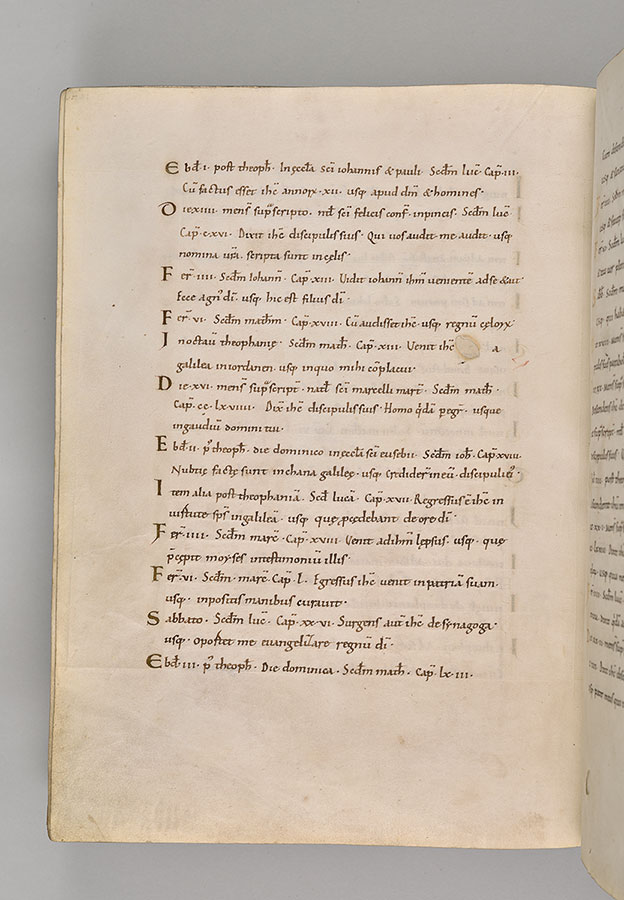 Ebd̄ · I · post theoph̄ · In eccl̄a sc̄i iohannis & pauli · Sec̄dm luc̄ · Cap̄ · III ·
Cū factus esset ihc̄ annorx · XII · usq · apud dm̄ & homines ·
Die XIIII · mens̄ supscripto · nt̄l sc̄i felicis conf̄ · inpincis · Sec̄dm luc̄
Cap̄ · c · XVI · Dixit ihc̄ discipulis suis · Qui uos audit me audit · usq
nomina ur̄a · scripta sunt in cęlis ·
Fer̄ · IIII · Sec̄dm Iohann̄ · Cap̄ · XIII · Uidit iohann̄ ihm̄ uenientē ad se & ait
Ecce agn' dī · usq · hic est filius dī ·
Fer̄ · VI · Sec̄dm math̄m · Cap̄ · XVIII · Cū audisset ihc̄ · usq · regnū cęlorx ·
In octau theophanię · Sec̄dm math̄ · Cap̄ · XIII · Uenit ihc̄ a
galilea in iordanen · usq · in quo mihi cōplacui ·
Die · XVI · mens̄ supscript̄ · natl̄ sc̄i marcelli mart̄ · Sec̄dm math̄ ·
Cap̄ · cc · LX · VIIII · Dix̄ ihc̄ discipulis suis · Homo qd̄a pegr̄ · usque
in gaudiū domini tui ·
Ebd̄ · II · p' theoph̄ · die dominico in eccl̄a sc̄i eusebii · Sec̄dm ioh̄ · Cap̄ XVIII ·
Nubtię factę sunt in chana galileę · usq · credider̄ in eū · discipuli ei' ·
Item alia post theophaniā · Sec̄d lucā · Cap̄ · XVII · Regressus ē ihc̄ in
uirtute sp̄s in galileā · usq · quę pcedebant de ore dī ·
Fer̄ · IIII · Sec̄dm marc̄ · Cap̄ · XVIII · Uenit ad ihm̄ lepsus · usq · quę
pcepit moyses in testimoniū illis ·
Fer̄ · VI · Sec̄dm · marc̄ · Cap̄ · L · Egressus ihc̄ uenit in patriā suam ·
usq · inpositis manibus curauit ·
Sabbato · Sec̄dm luc̄ · Cap̄ · XX · VI · Surgens aut̄ ihc̄ de synagoga ·
usq · oportet me euangelizare regnū dī ·
Ebd̄ · III · p' theoph̄ · Die dominica · Sec̄dm math̄ · Cap̄ · LX · III ·